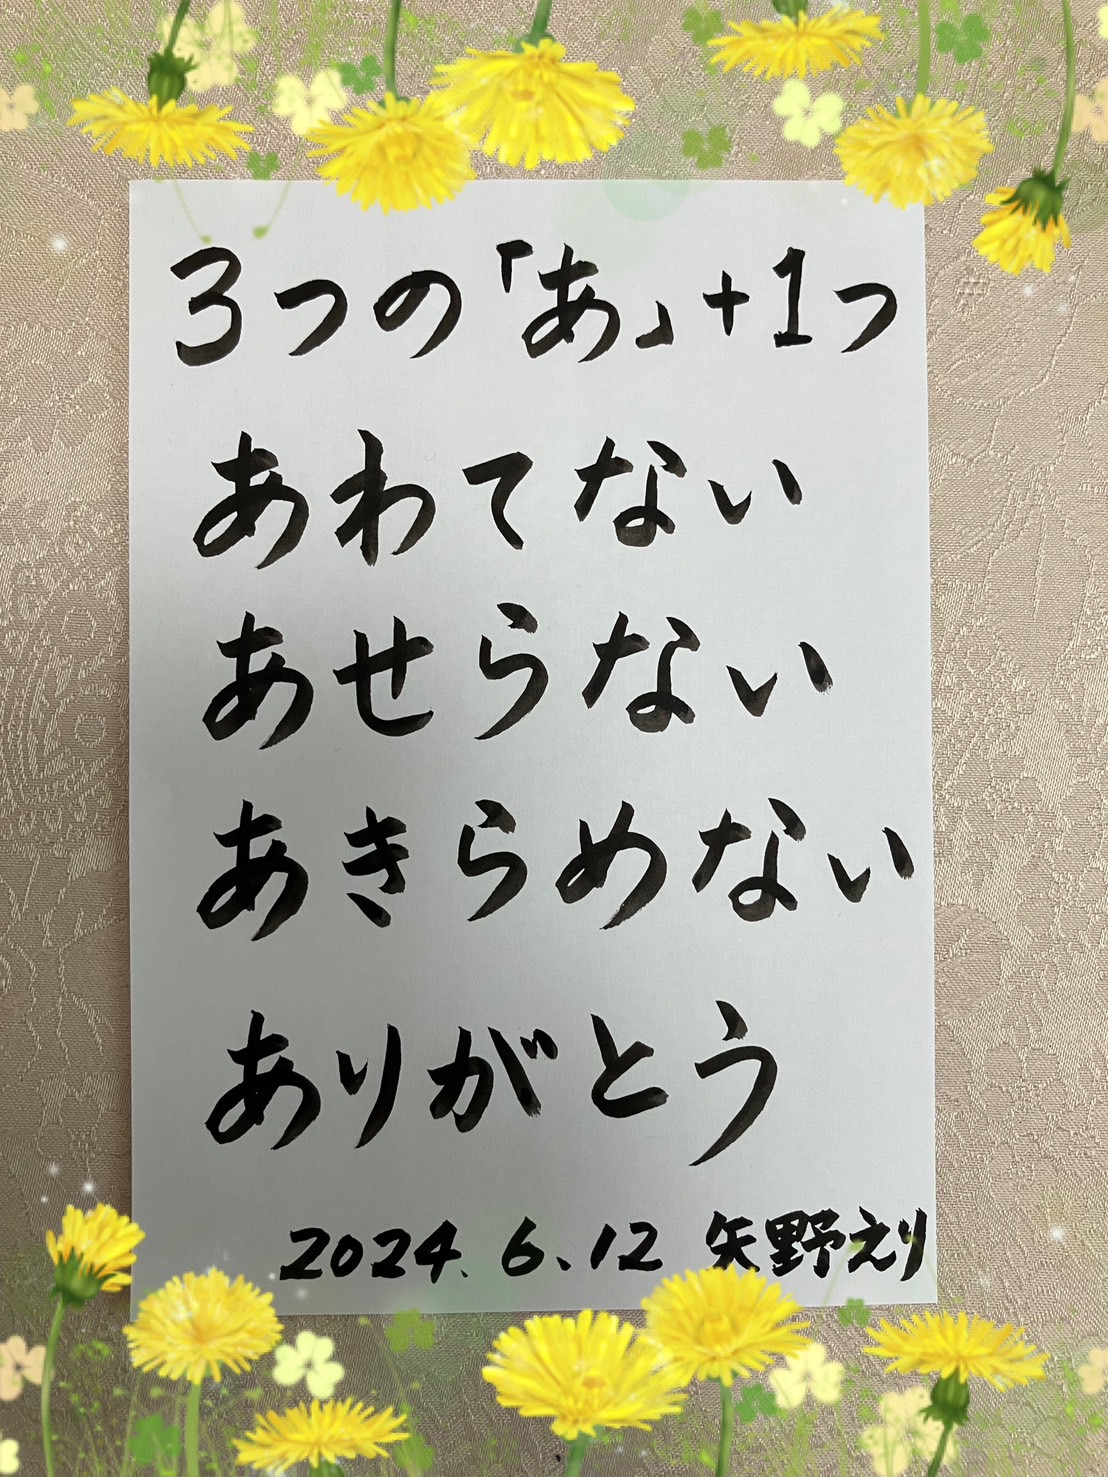 3つの「あ」+1つ
あわてない
あせらない
あきらめない
ありがとう
2024.6.12 矢野えり